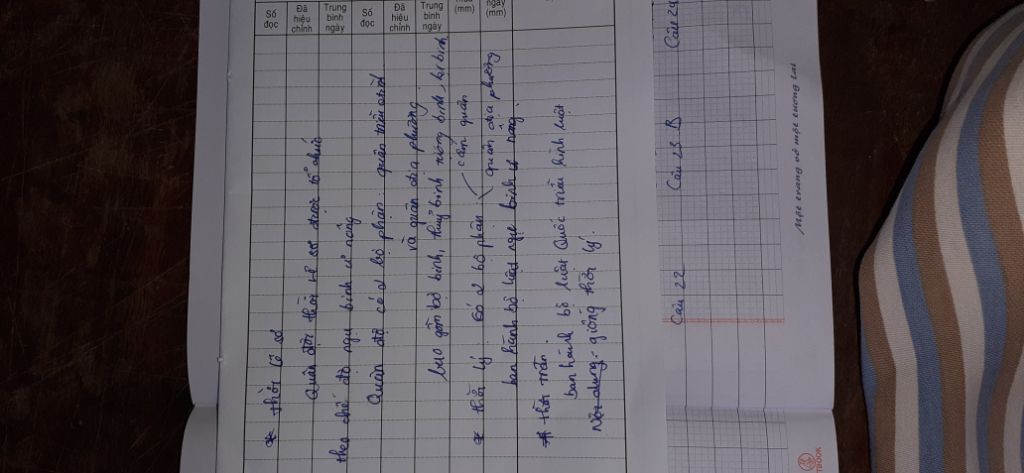 Số đọc
Đã hiệu chỉnh
Trung bình ngày
Số đọc
Đã hiệu chỉnh
Trung bình ngày
(mm)
ngày (mm)
* thời lê sơ
Quân đội thời lê sơ được tổ chức
theo chế độ ngụ binh ư nông
Quân đội có 2 bộ phận: quân triều đình
và quân địa phương
bao gồm bộ binh, thuỷ binh, tượng binh, kị binh
* thời lý: có 2 bộ phận
cấm quân
quân địa phương
ban hành bộ luật ngụ binh ư nông.
* thời trần.
ban hành bộ luật Quốc triều hình luật
Nội dung: giống thời lý.
Câu 22
Câu 23 B
Câu 24
Một trang vở một tương lai